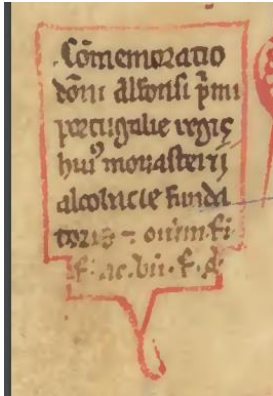 Cõmemoratio
dõni Alfonsi pͥmi
portugalie regis
huiꝰ monasterij
alcobacie funda
toris ⁊ oĩum fi
f. ac. bñ. f. d.